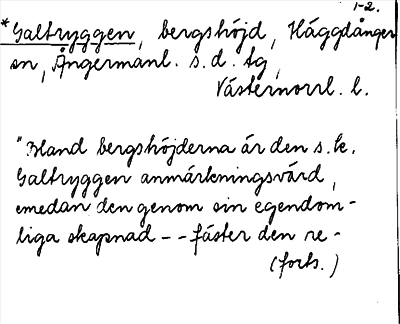 1-2.
*Galtryggen, bergshöjd, Häggdånger
sn, Ångermanl. s. d. tg,
Västernorrl. l.
"Bland bergshöjderna är den s. k.
Galtryggen anmärkningsvärd,
emedan den genom sin egendom-
liga skapnad - - fäster den re-
(forts.)